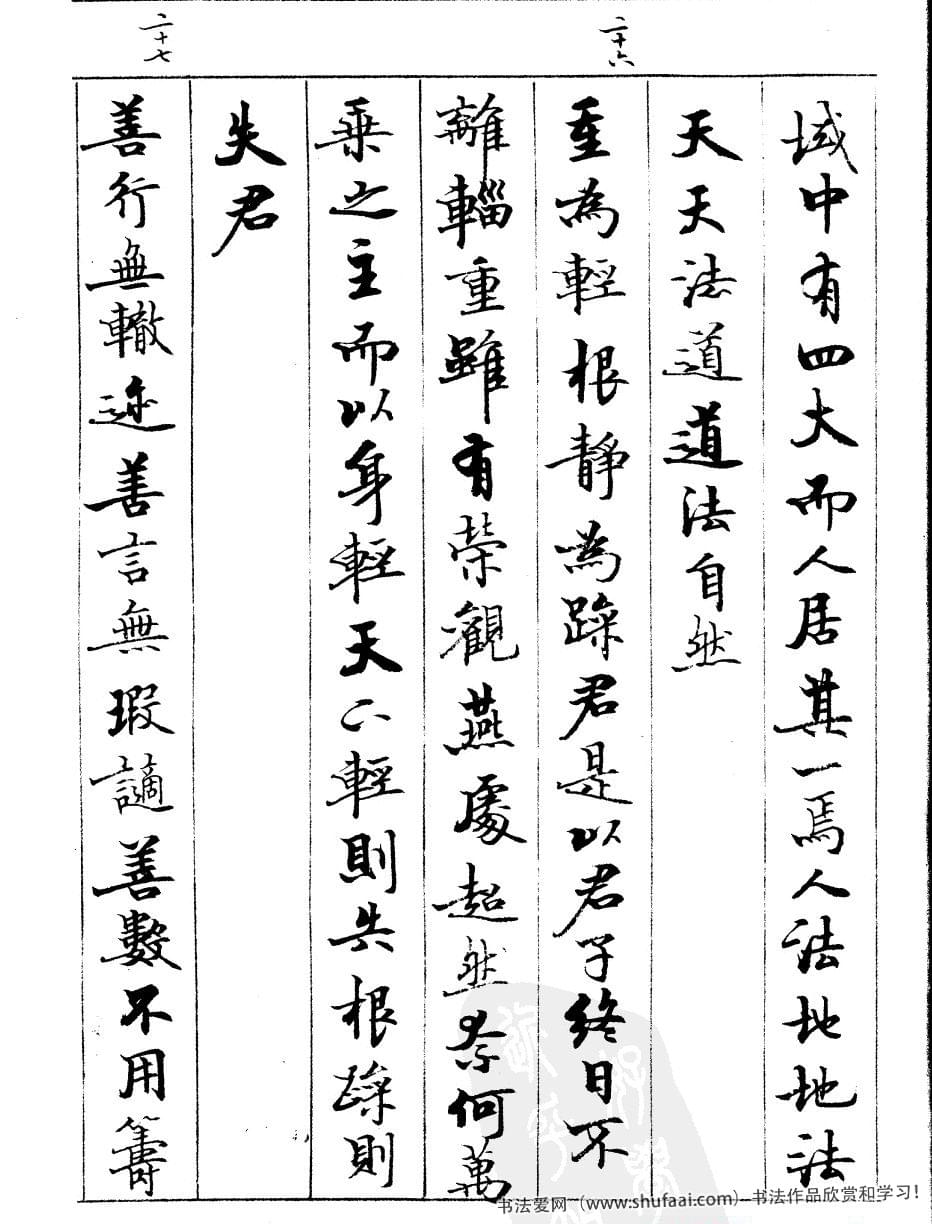 二十六
域中有四大而人居其一焉人法地地法
天天法道道法自然
重為輕根靜為躁君是以君子終日不
離輜重雖有榮觀燕處超然奈何萬
乗之主而以身輕天下輕則失根躁則
失君
二十七
善行無轍迹善言無瑕謫善數不用籌
书法爱网(www.shufaai.com)书法作品欣赏和学习!